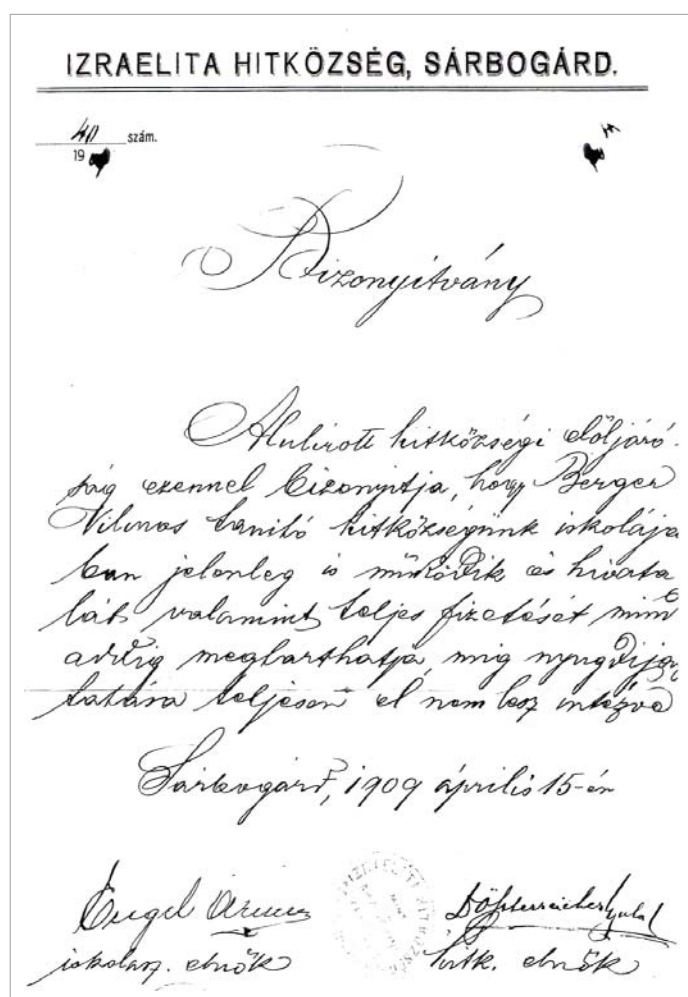 IZRAELITA HITKÖZSÉG, SÁRBOGÁRD.
40 szám.
19
Bizonyitvány
Alulirott hitközségi elöljáró-
ság ezennel bizonyitja, hogy Berger
Vilmos tanitó hitközségünk iskolájá
ban jelenleg is működik és hivata
lát valamint teljes fizetését mind
addig megtarthatja, mig nyugdija
tatása teljesen el nem lesz intézve
Sárbogárd, 1909 április 15-én
Engel Ármin
iskolasz. elnök
Dr Österreicher Gyula
hitk. elnök